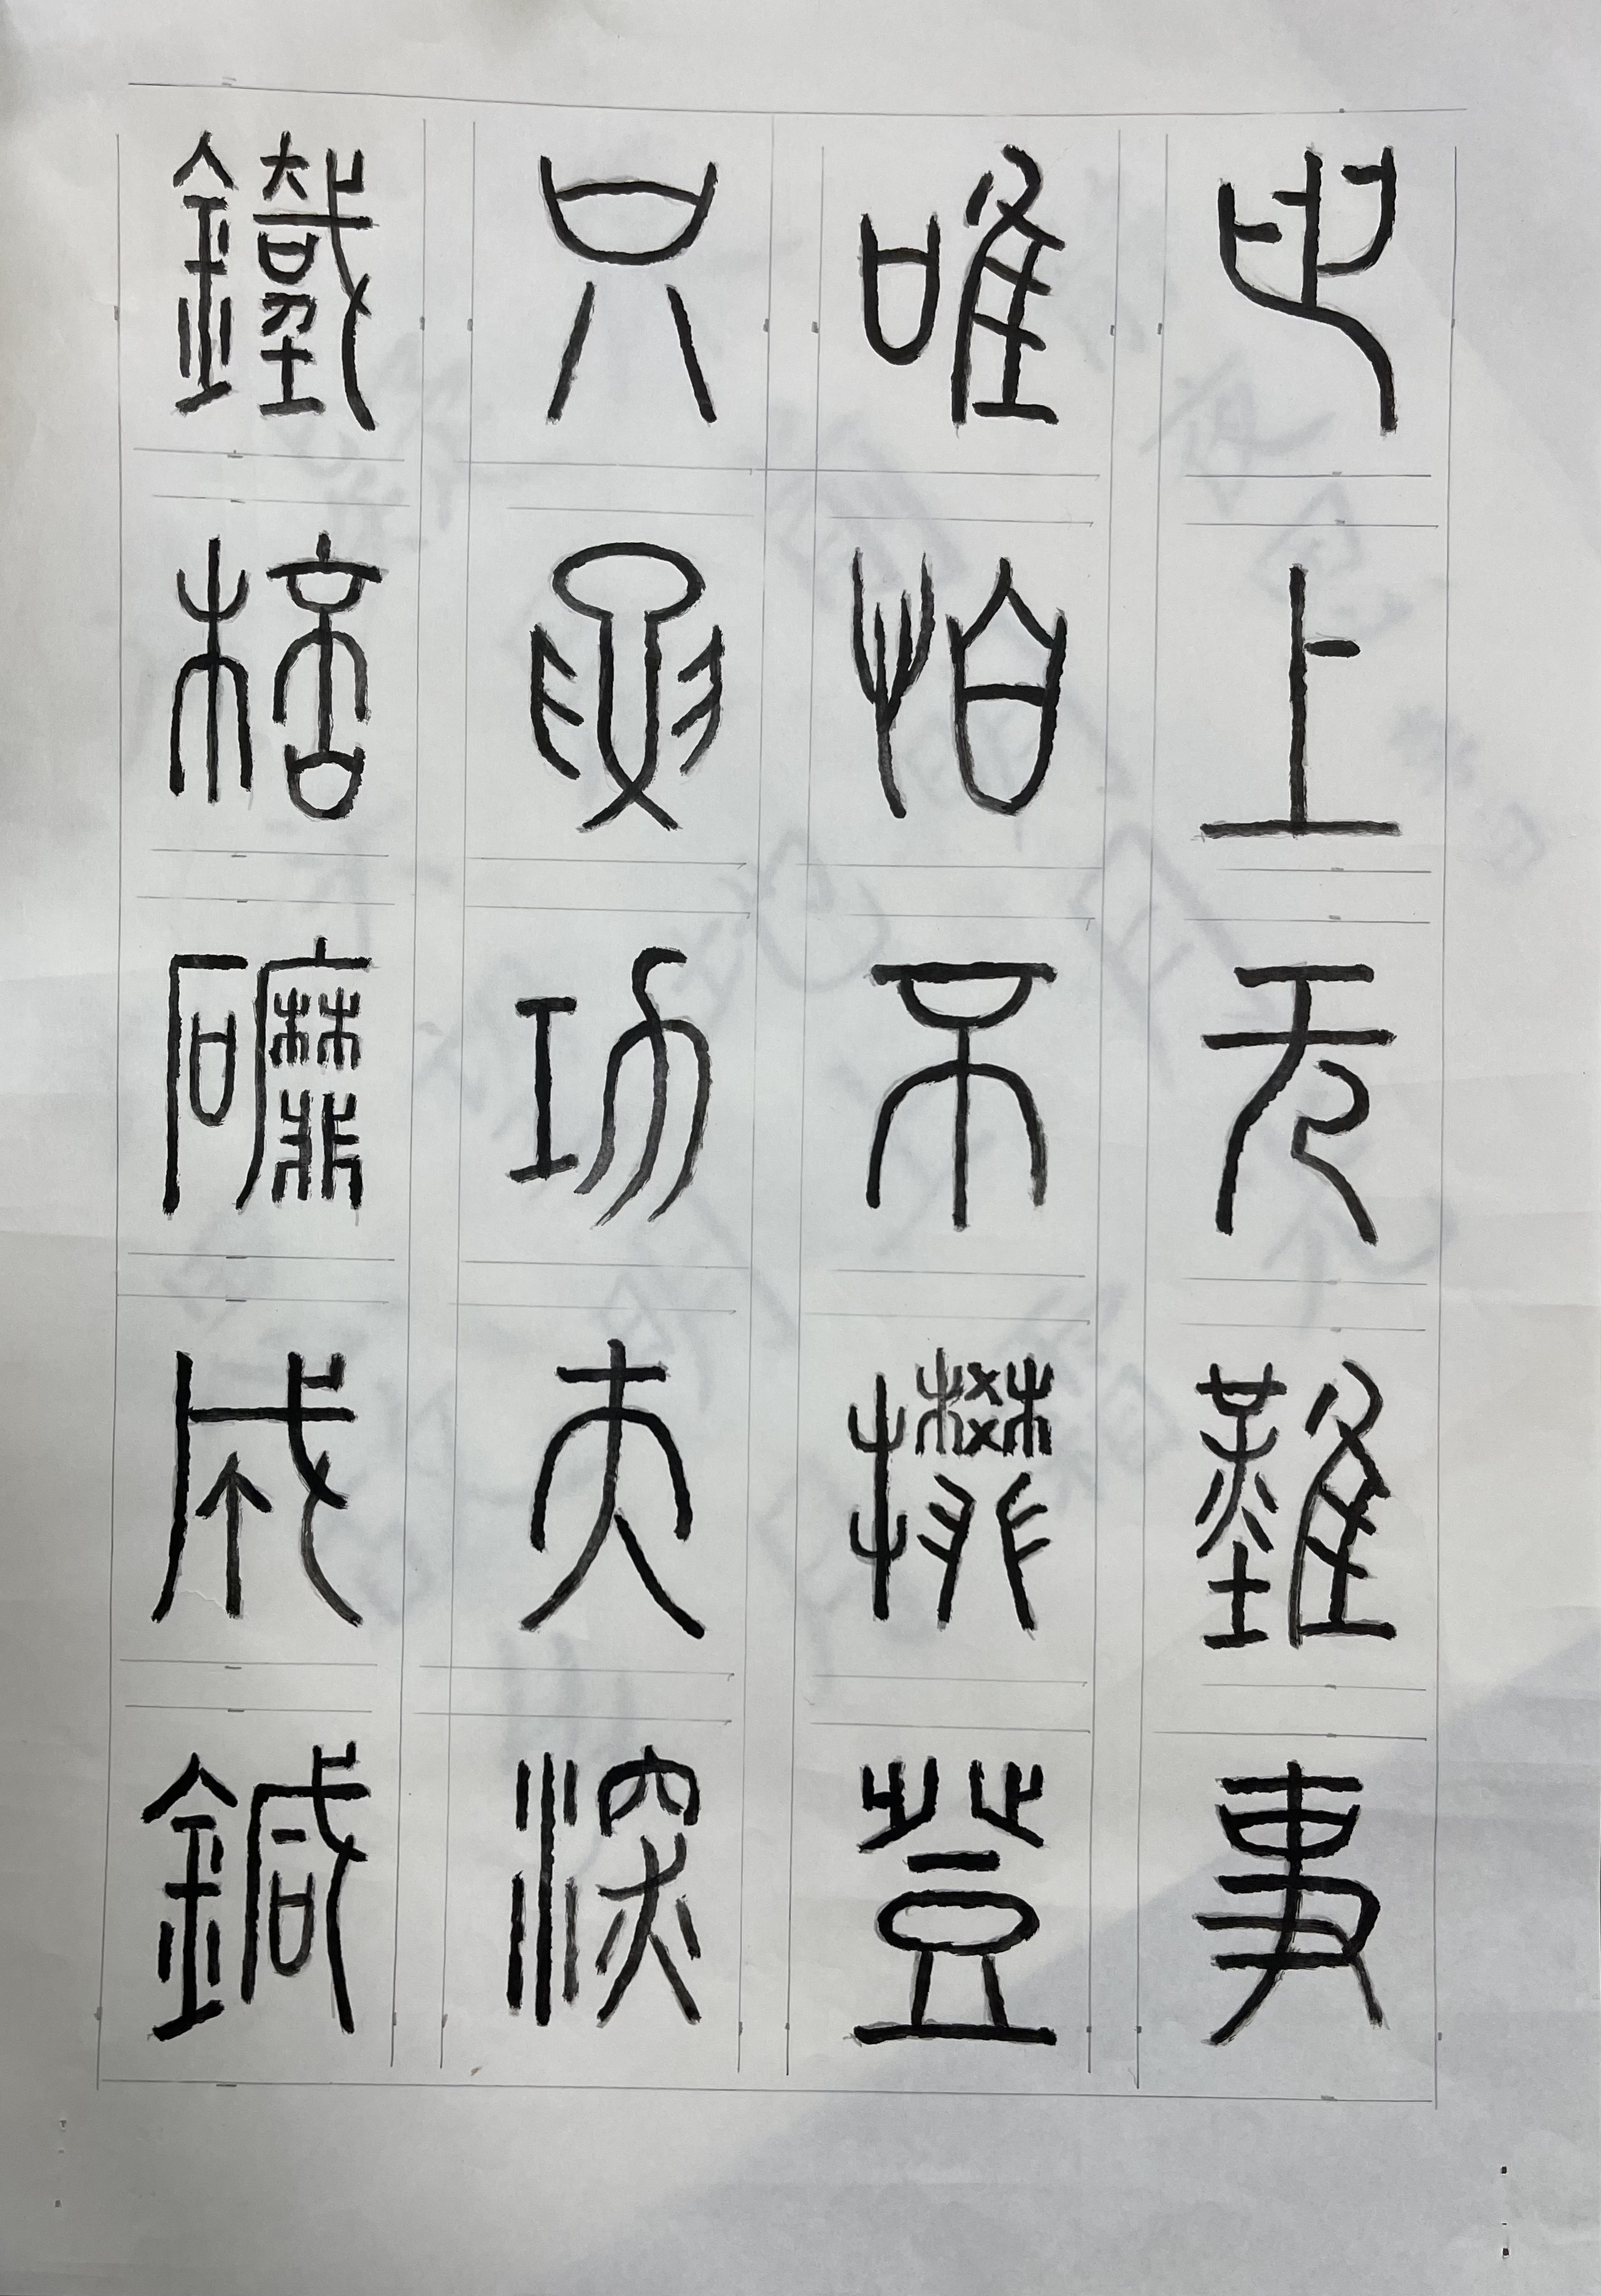 世上无難事
唯怕不攀登
只要功夫深
鐵棓磨成鍼